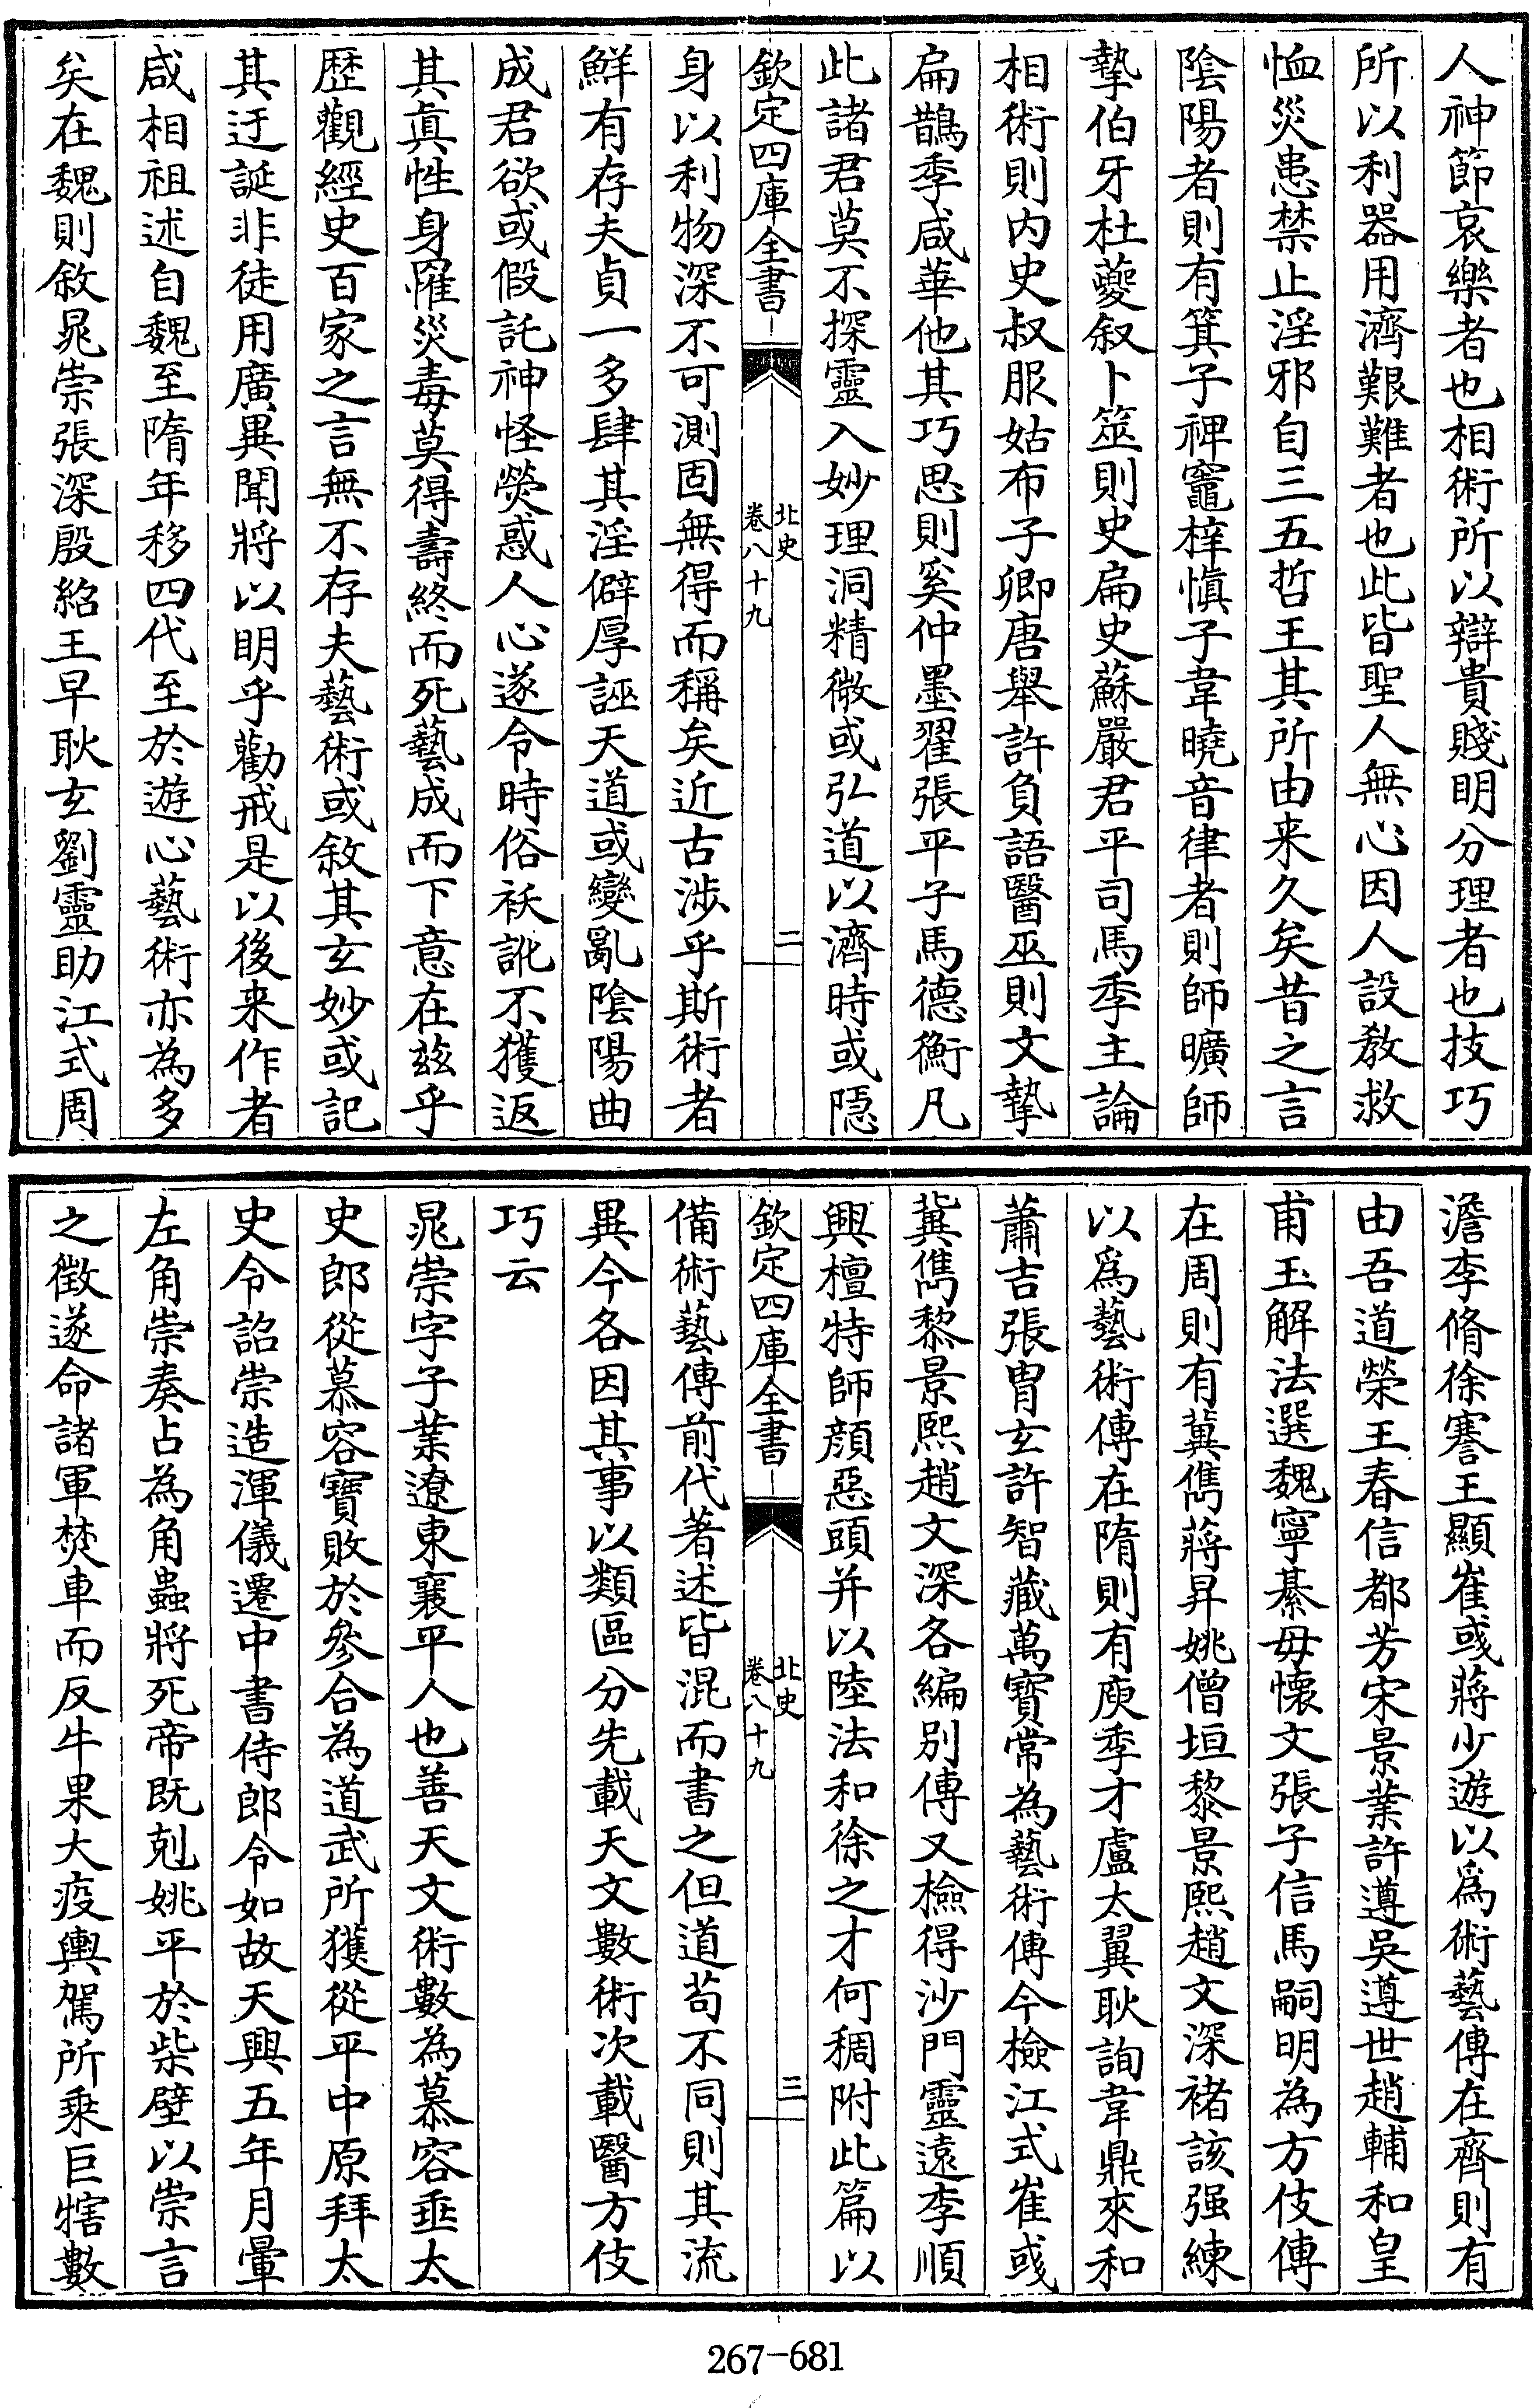 人神節哀樂者也相術所以辯貴賤明分理者也技巧
所以利器用濟艱難者也此皆聖人無心因人設教救
恤災患禁止淫邪自三五哲王其所由来久矣昔之言
陰陽者則有箕子裨竈梓慎子韋曉音律者則師曠師
摯伯牙杜夔叙卜筮則史扁史蘇嚴君平司馬季主論
相術則内史叔服姑布子卿唐舉許負語醫巫則文摯
扁鵲季咸華他其巧思則奚仲墨翟張平子馬德衡凡
此諸君莫不探靈入妙理洞精微或弘道以濟時或隱
欽定四庫全書
北史
卷八十九
二
身以利物深不可測固無得而稱矣近古涉乎斯術者
鮮有存夫貞一多肆其淫僻厚誣天道或變亂陰陽曲
成君欲或假託神怪熒惑人心遂令時俗祅訛不獲返
其真性身罹災毒莫得壽終而死藝成而下意在兹乎
歴觀經史百家之言無不存夫藝術或敘其玄妙或記
其迂誕非徒用廣異聞將以明乎勸戒是以後来作者
咸相祖述自魏至隋年移四代至於遊心藝術亦為多
矣在魏則敘晁崇張深殷紹王早耿玄劉靈助江式周
澹李脩徐謇王顯崔彧蔣少遊以爲術藝傳在齊則有
由吾道榮王春信都芳宋景業許遵吳遵世趙輔和皇
甫玉解法選魏寧綦毋懷文張子信馬嗣明為方伎傳
在周則有冀儁蔣昇姚僧垣黎景熙趙文深褚該强練
以爲藝術傳在隋則有庾季才盧太翼耿詢韋鼎來和
蕭吉張胄玄許智藏萬寶常為藝術傳今檢江式崔彧
冀儁黎景熙趙文深各編别傳又檢得沙門靈遠李順
興檀特師顔惡頭并以陸法和徐之才何稠附此篇以
欽定四庫全書
北史
卷八十九
三
備術藝傳前代著述皆混而書之但道苟不同則其流
異今各因其事以類區分先載天文數術次載醫方伎
巧云
晁崇字子業遼東襄平人也善天文術數為慕容垂太
史郎從慕容寶敗於參合為道武所獲從平中原拜太
史令詔崇造渾儀遷中書侍郎令如故天興五年月暈
左角崇奏占為角蟲將死帝既剋姚平於柴壁以崇言
之徵遂命諸軍焚車而反牛果大疫輿駕所乗巨犗數
267-681